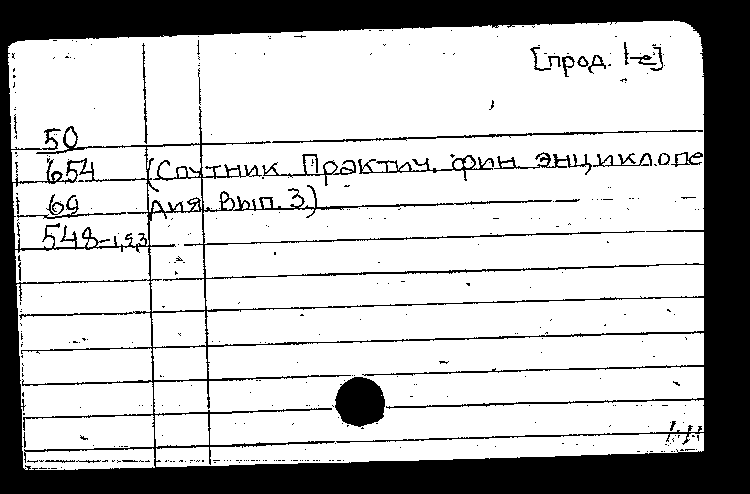 [прод. 1-е]
50
654 (Спутник Практич. фин. энциклопе
69 дия. Вып. 3)
548-1,2,3